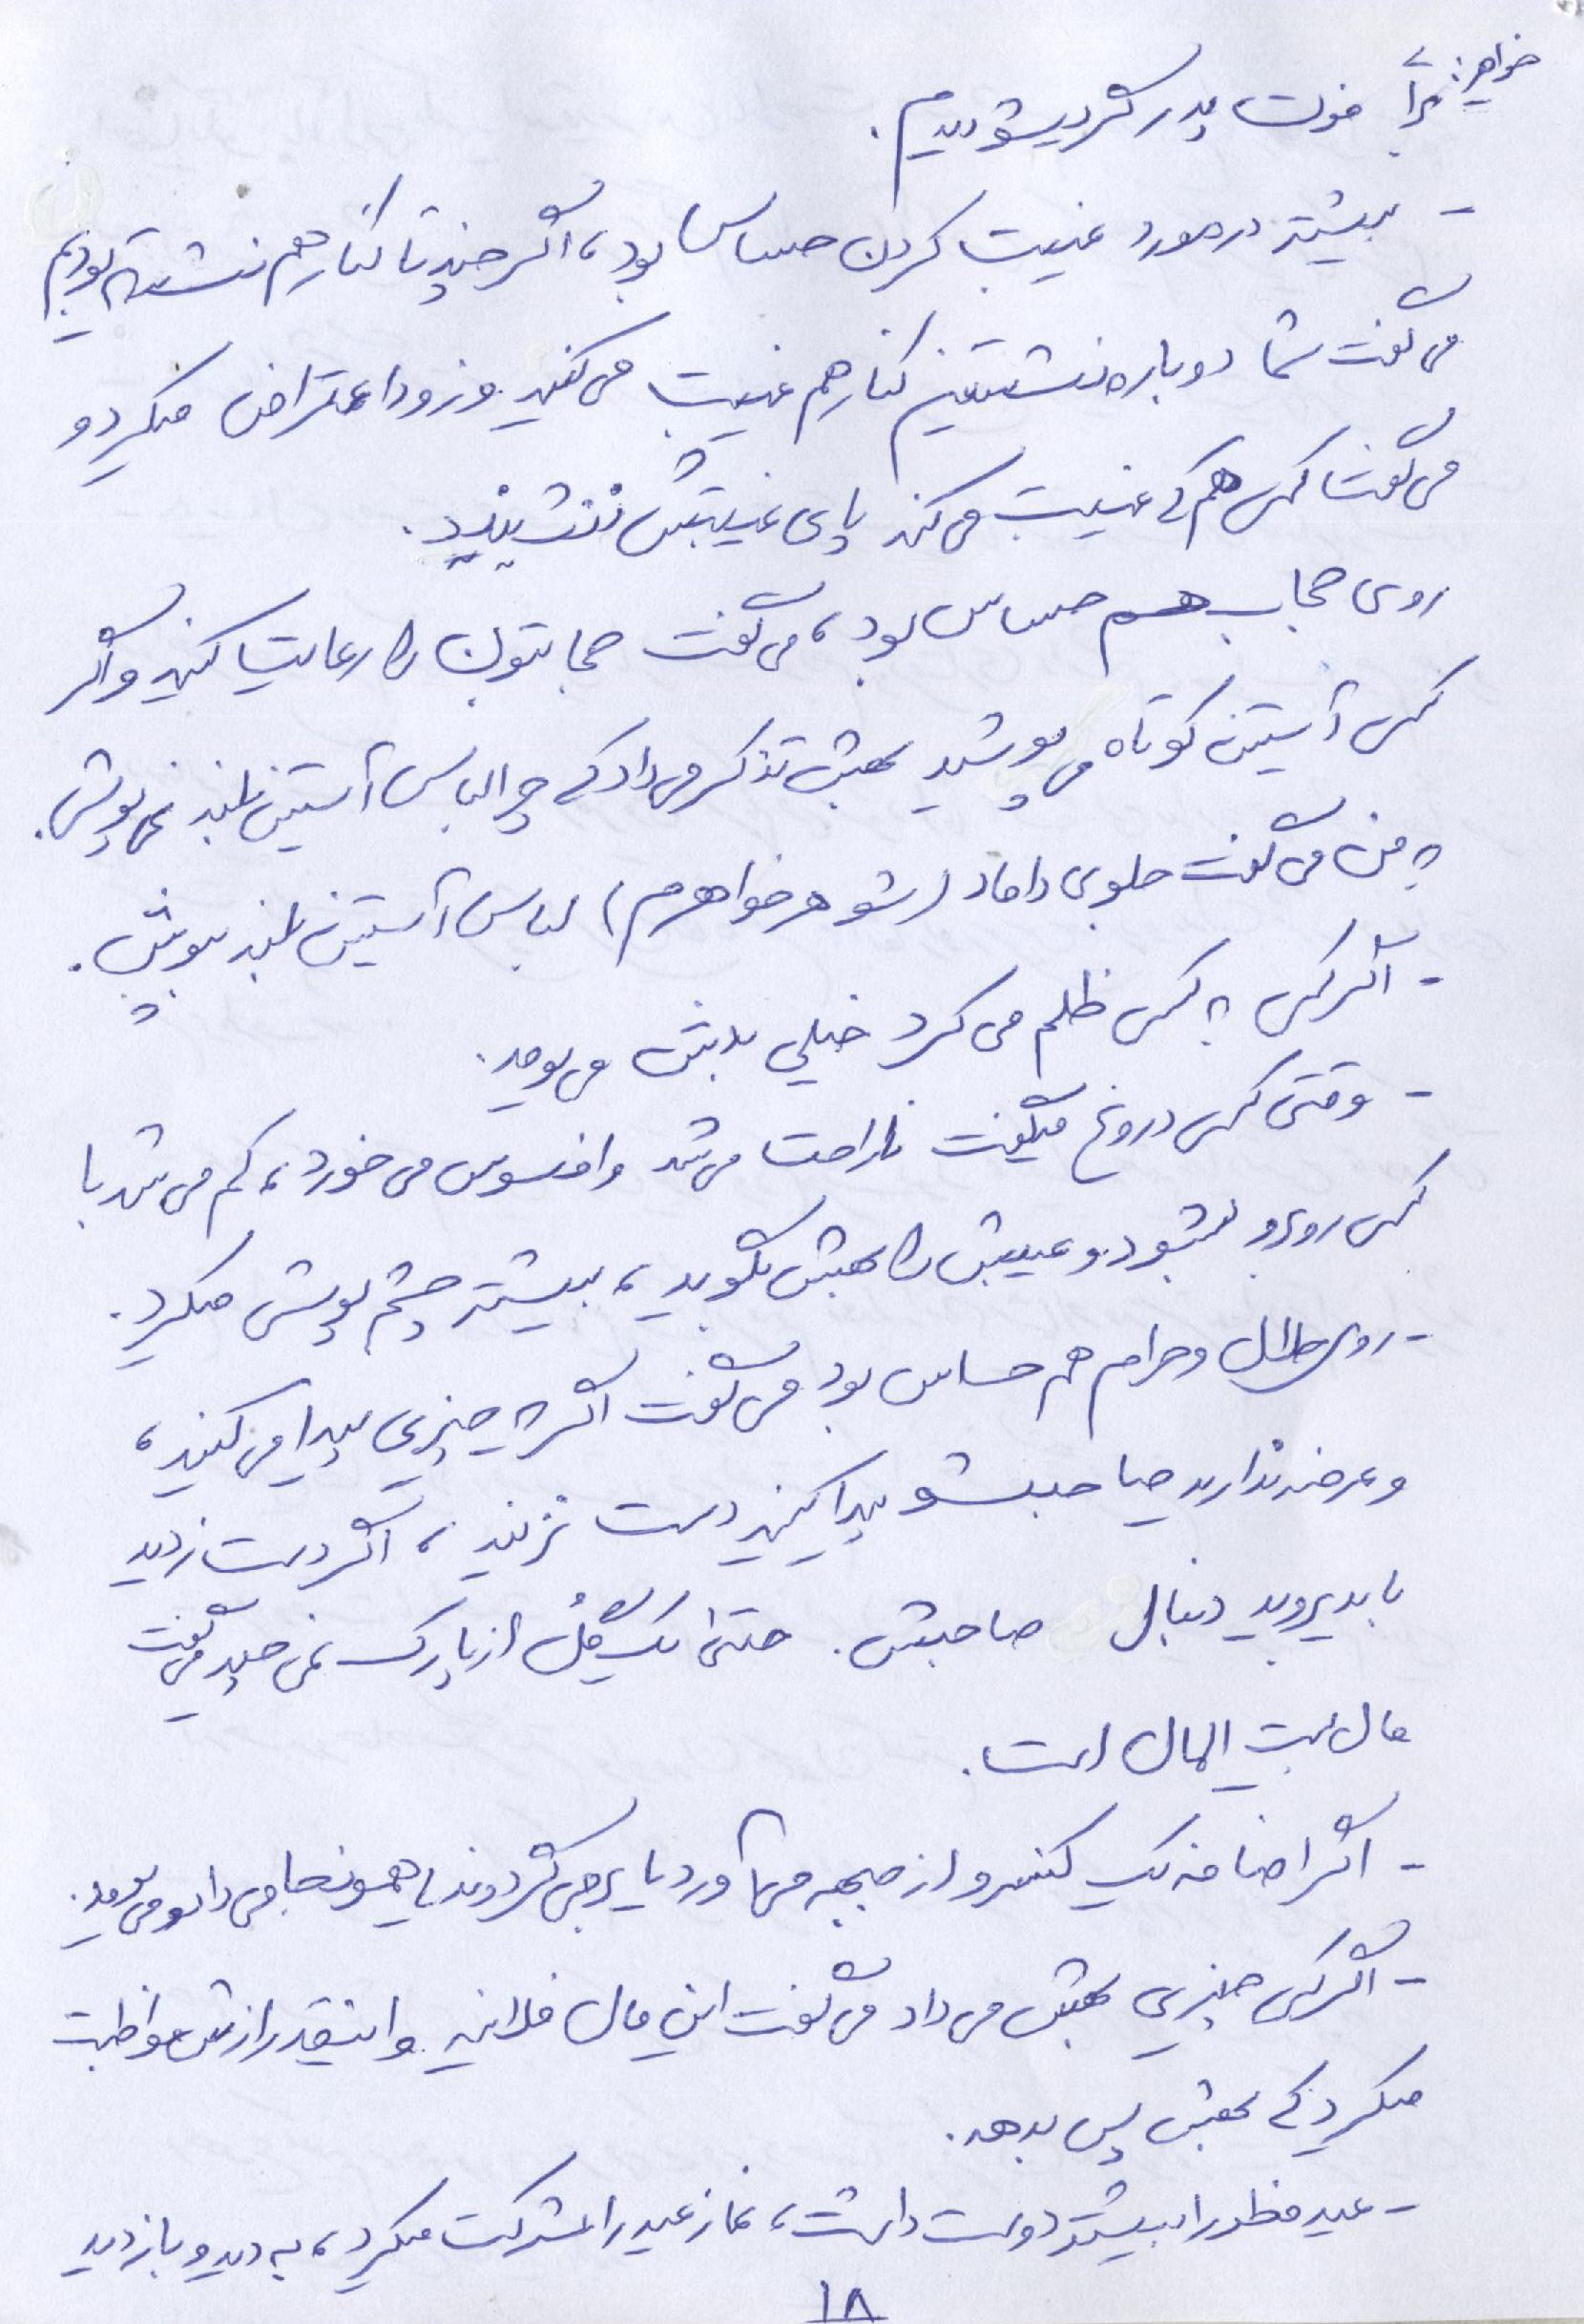 خواهر: برای فوت پدر گریشو دیدم.
- بیشتر در مورد غیبت کردن حساس بود، اگر چند تا کنار هم نشسته بودیم
می گفت شما دوباره نشستین کنار هم غیبت می کنید و زود اعتراض میکرد و
می گفت کسی هم که غیبت می کند پای غیبتش ننشینید.
روی حجاب هم حساس بود، می گفت حجابتون را رعایت کنید و اگر
کسی آستین کوتاه می پوشید بهش تذکر می داد که چرا لباس آستین بلند نمی پوشی.
به من می گفت جلوی داماد (شوهر خواهرم) لباس آستین بلند بپوش.
- اگر کسی به کسی ظلم می کرد خیلی بدش می یومد.
- وقتی کسی دروغ میگفت ناراحت می شد و افسوس می خورد، کم می شد با
کسی روبرو بشود و عیبش را بهش بگوید، بیشتر چشم پوشی میکرد.
- روی حلال و حرام هم حساس بود می گفت اگر یه چیزی پیدا می کنید،
و عرضه ندارید صاحبشو پیدا کنید دست نزنید، اگر دست زدید
باید بروید دنبال صاحبش. حتی یک گل از پارک نمی چید می گفت
مال بیت المال است.
- اگر اضافه یک کنسرو از جبهه می آورد یا برمی گردوند یا همونجا می داد و می یومد.
- اگر کسی چیزی بهش می داد می گفت این مال فلانیه و اینقدر ازش مواظبت
میکرد که بهش پس بدهد.
- عید فطر را بیشتر دوست داشت، نماز عید را شرکت میکرد، به دید و بازدید
۱۸